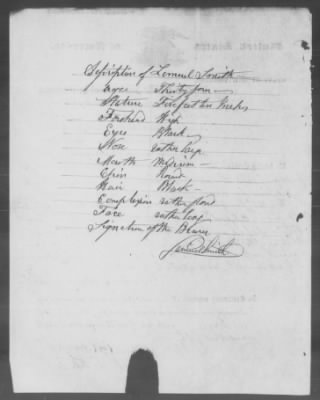 Description of Lemuel Smith
Age Thirty four
Stature Five feet ten Inches
Forehead High
Eyes Black
Nose rather large
Mouth Medium
Chin Round
Hair Black
Complexion rather
Face rather long
Signature of the Bearer
Lemuel Smith